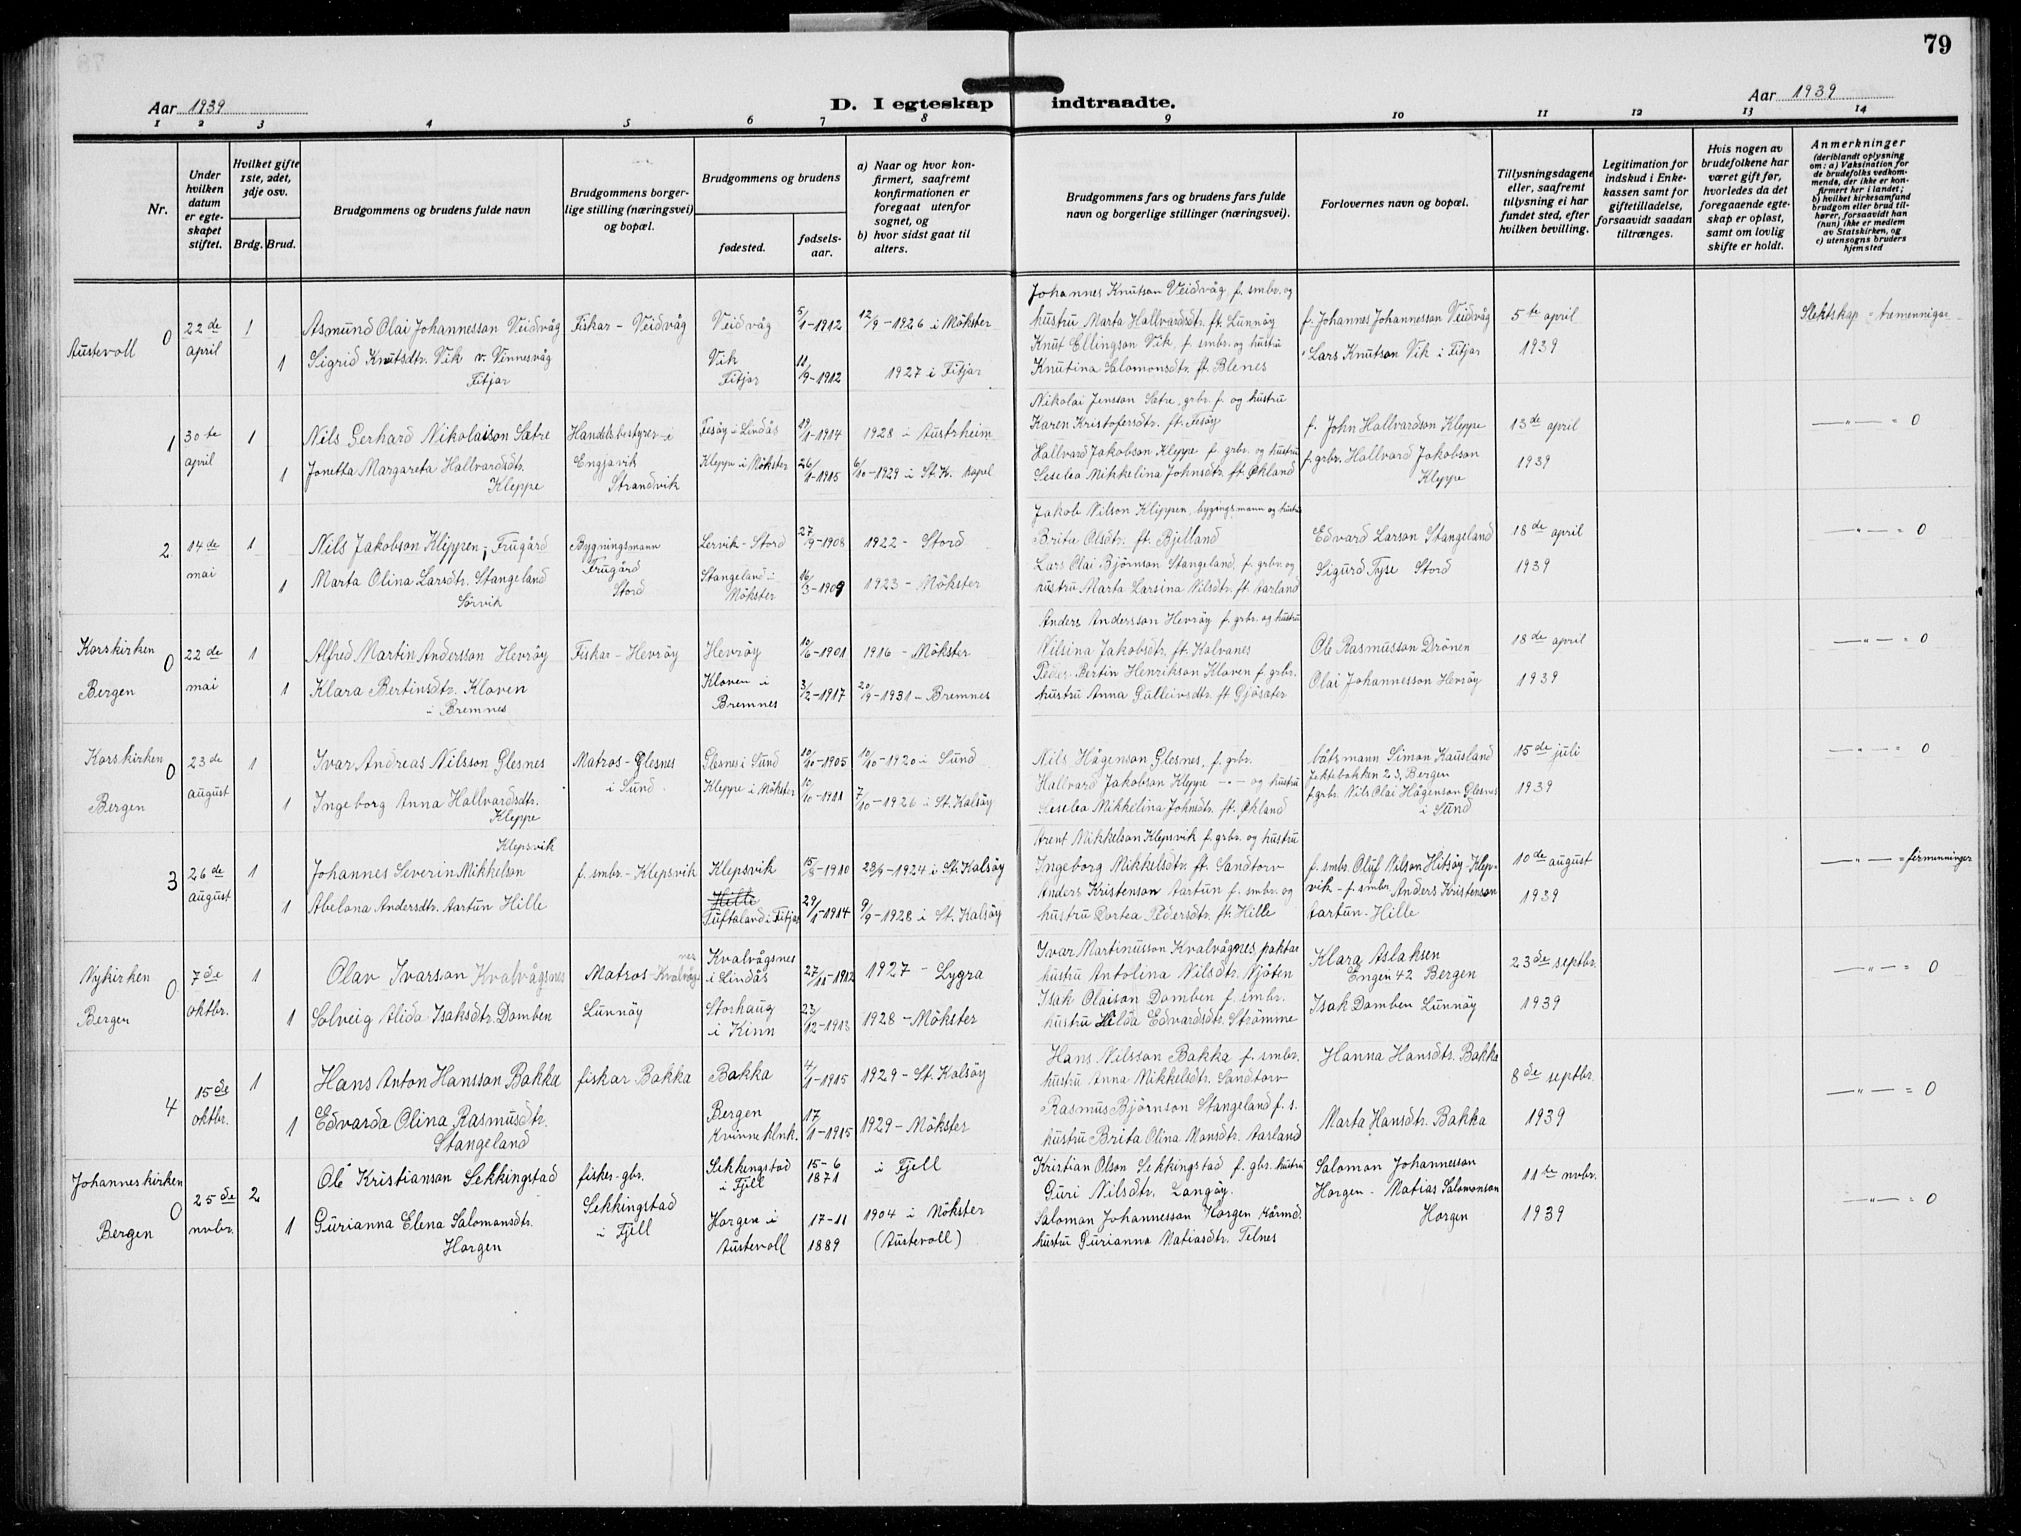 79
Aar 1939
D. I egteskap indtraadte.
Aar 1939
1 2 3 4 5 6 7 8 9 10 11 12 13 14
Nr.
Under hvilken datum er egteskapet stiftet.
Hvilket gifte 1ste, 2det, 3dje osv.
Brdg. Brud.
Brudgommens og brudens fulde navn
Brudgommens borgerlige stilling (næringsvei) og bopæl.
Brudgommens og brudens
fødested.
fødselsaar.
a) Naar og hvor konfirmert, saafremt konfirmationen er foregaat utenfor sognet, og
b) hvor sidst gaat til alters.
Brudgommens fars og brudens fars fulde navn og borgerlige stillinger (næringsvei).
Forlovernes navn og bopæl.
Tillysningsdagene eller, saafremt tillysning ei har fundet sted, efter hvilken bevilling.
Legitimation for indskud i Enkekassen samt for giftetilladelse, forsaavidt saadan tiltrænges.
Hvis nogen av brudefolkene har været gift før, hvorledes da det foregaaende egteskap er opløst, samt om lovlig skifte er holdt.
Anmerkninger
(deriblandt oplysning om: a) Vaksination for de brudefolks vedkommende, der ikke er konfirmert her i landet;
b) hvilket kirkesamfund brudgom eller brud tilhører, forsaavidt han (hun) ikke er medlem av Statskirken, og
c) utensogns bruders hjemsted
Austevoll 0 22de april 1 Asmund Olai Johannesson Veidvåg Fiskar - Veidvåg Veidvåg 5/1-1912 12/9-1926 i Møkster
1 Sigrid Knutsdtr. Vik v. Vinnesvåg Fitjar Vik Fitjar 11/9-1912 1927 i Fitjar
Johannes Knutson Veidvåg f. smbr. og
hustru Marta Hallvardsdtr. ft. Lunnøy
Knut Ellingson Vik f. smbr. og hustru
Knutina Salomonsdtr. ft. Blenes
f. Johannes Johannesson Veidvåg
Lars Knutson Vik i Fitjar
5te april 1939
Slektskap = tremenningar
1 30te april 1 Nils Gerhard Nikolaison Sætre Handelsbestyrer i Engjavik Strandvik Fesøy i Lindås 29/1-1914 1928 i Austrheim
1 Jonetta Margareta Hallvardsdtr. Kleppe Kleppe i Møkster 26/1-1915 6/10-1929 i St. K. kapel
Nikolai Jensson Sætre, grbr. f. og hustru
Karen Kristofersdtr. ft. Fesøy
Hallvard Jakobson Kleppe f. grbr. og hustru
Seselea Mikkelina Johnsdtr. ft. Økland
f. John Hallvardson Kleppe
f. grbr. Hallvard Jakobson Kleppe
13de april 1939
— " — = 0
2 14de mai 1 Nils Jakobson Klippen, Frugård Bygningsmann Frugård Stord Lervik - Stord 27/9-1908 1922 - Stord
1 Marta Olina Larsdtr. Stangeland Sørvik Stangeland i Møkster 16/3-1909 1923 - Møkster
Jakob Nilson Klippen, bygingsmann og hustru
Brite Olsdtr. ft. Bjelland
Lars Olai Bjørnson Stangeland, f. grbr. og
hustru Marta Larsina Nilsdtr. ft. Aarland
Edvard Larson Stangeland
Sigurd Tyse Stord
18de april 1939
— " — = 0
Korskirken Bergen 0 22de mai 1 Alfred Martin Andersson Hevrøy Fiskar - Hevrøy Hevrøy 10/6-1901 1916 - Møkster
1 Klara Bertinsdtr. Kloven i Bremnes Kloven i Bremnes 3/2-1917 20/9-1931 - Bremnes
Anders Andersson Hevrøy f. grbr. og hustru
Nilsina Jakobsdtr. ft. Kalvanes
Peder Bertin Henrikson Kloven f. grbr.
hustru Anna Gulleivsdtr. ft. Gjøsæter
Ole Rasmusson Drønen
Olai Johannesson Hevrøy
18de april 1939
— " — = 0
Korskirken Bergen 0 23de august 1 Ivar Andreas Nilsson Glesnes Matros - Glesnes i Sund Glesnes i Sund 10/10-1905 10/10-1920 i Sund
1 Ingeborg Anna Hallvardsdtr. Kleppe Kleppe i Møkster 10/10-1911 7/10-1926 i St. Kalsøy
Nils Hågenson Glesnes, f. grbr.
Hallvard Jakobson Kleppe - " - og hustru
Seselea Mikkelina Johnsdtr. ft. Økland
båtsmann Simon Kausland
Jektebakken 23, Bergen
f. grbr. Nils Olai Hågenson Glesnes i Sund
15de juli 1939
— " — = 0
3 26de august 1 Johannes Severin Mikkelson Klepsvik f. smbr. - Klepsvik Klepsvik 15/8-1910 28/9-1924 i St. Kalsøy
1 Abelona Andersdtr. Aartun Hille Hille Tuftaland i Fitjar 29/1-1914 9/9-1928 i St. Kalsøy
Arent Mikkelson Klepsvik f. grbr. og hustru
Ingeborg Mikkelsdtr. ft. Sandtorv
Anders Kristenson Aartun f. smbr. og
hustru Dortea Pedersdtr. ft. Hille
f. smbr. Oluf Nilson Hitsøy - Klepvik - f. smbr. Anders Kristenson Aartun - Hille
10de august 1939
— " — = firmenninger
Nykirken Bergen 0 7de oktbr. 1 Olav Ivarson Kvalvågsnes Matros - Kvalvågsnes Kvalvågsnes i Lindås 27/11-1912 1927 - Lygra
1 Solveig Alida Isaksdtr. Domben Lunnøy Storhaug i Kinn 23/12-1913 1928 - Møkster
Ivar Martinusson Kvalvågnes paktar
hustru Antolina Nilsdtr. Njøten
Isak Olaison Domben f. smbr.
hustru Hilda Edvardsdtr. Strømme
Klara Aslaksen
Engen 42 Bergen
Isak Domben Lunnøy
23de septbr. 1939
— " — = 0
4 15de oktbr. 1 Hans Anton Hansson Bakka fiskar Bakka Bakka 4/1-1915 1929 - St. Kalsøy
1 Edvarda Olina Rasmusdtr. Stangeland Bergen Kvinneklnk. 17/1-1915 1929 - Møkster
Hans Nilsson Bakka f. smbr.
hustru Anna Mikkelsdtr. Sandtorv
Rasmus Bjørnson Stangeland f. s.
hustru Brita Olina Monsdtr. Aarland
Hanna Hansdtr. Bakka
Marta Hansdtr. Bakka
8de septbr. 1939
— " — = 0
Johanneskirken Bergen 0 25de nvbr. 2 Ole Kristianson Sekkingstad fisker-gbr. Sekkingstad i Fjell Sekkingstad i Fjell 15-6 1871 i Fjell
1 Gurianna Elena Salomonsdtr. Horgen Horgen i Austevoll 17-11 1889 1904 i Møkster (Austevoll)
Kristian Olson Sekkingstad f. gbr. hustru
Guri Nilsdtr. Langøy.
Salomon Johannesson Horgen kårmd.
hustru Gurianna Matiasdtr. Telnes
Salomon Johannesson
Horgen - Matias Salomonson
Horgen
11te nvbr. 1939
— " — = 0